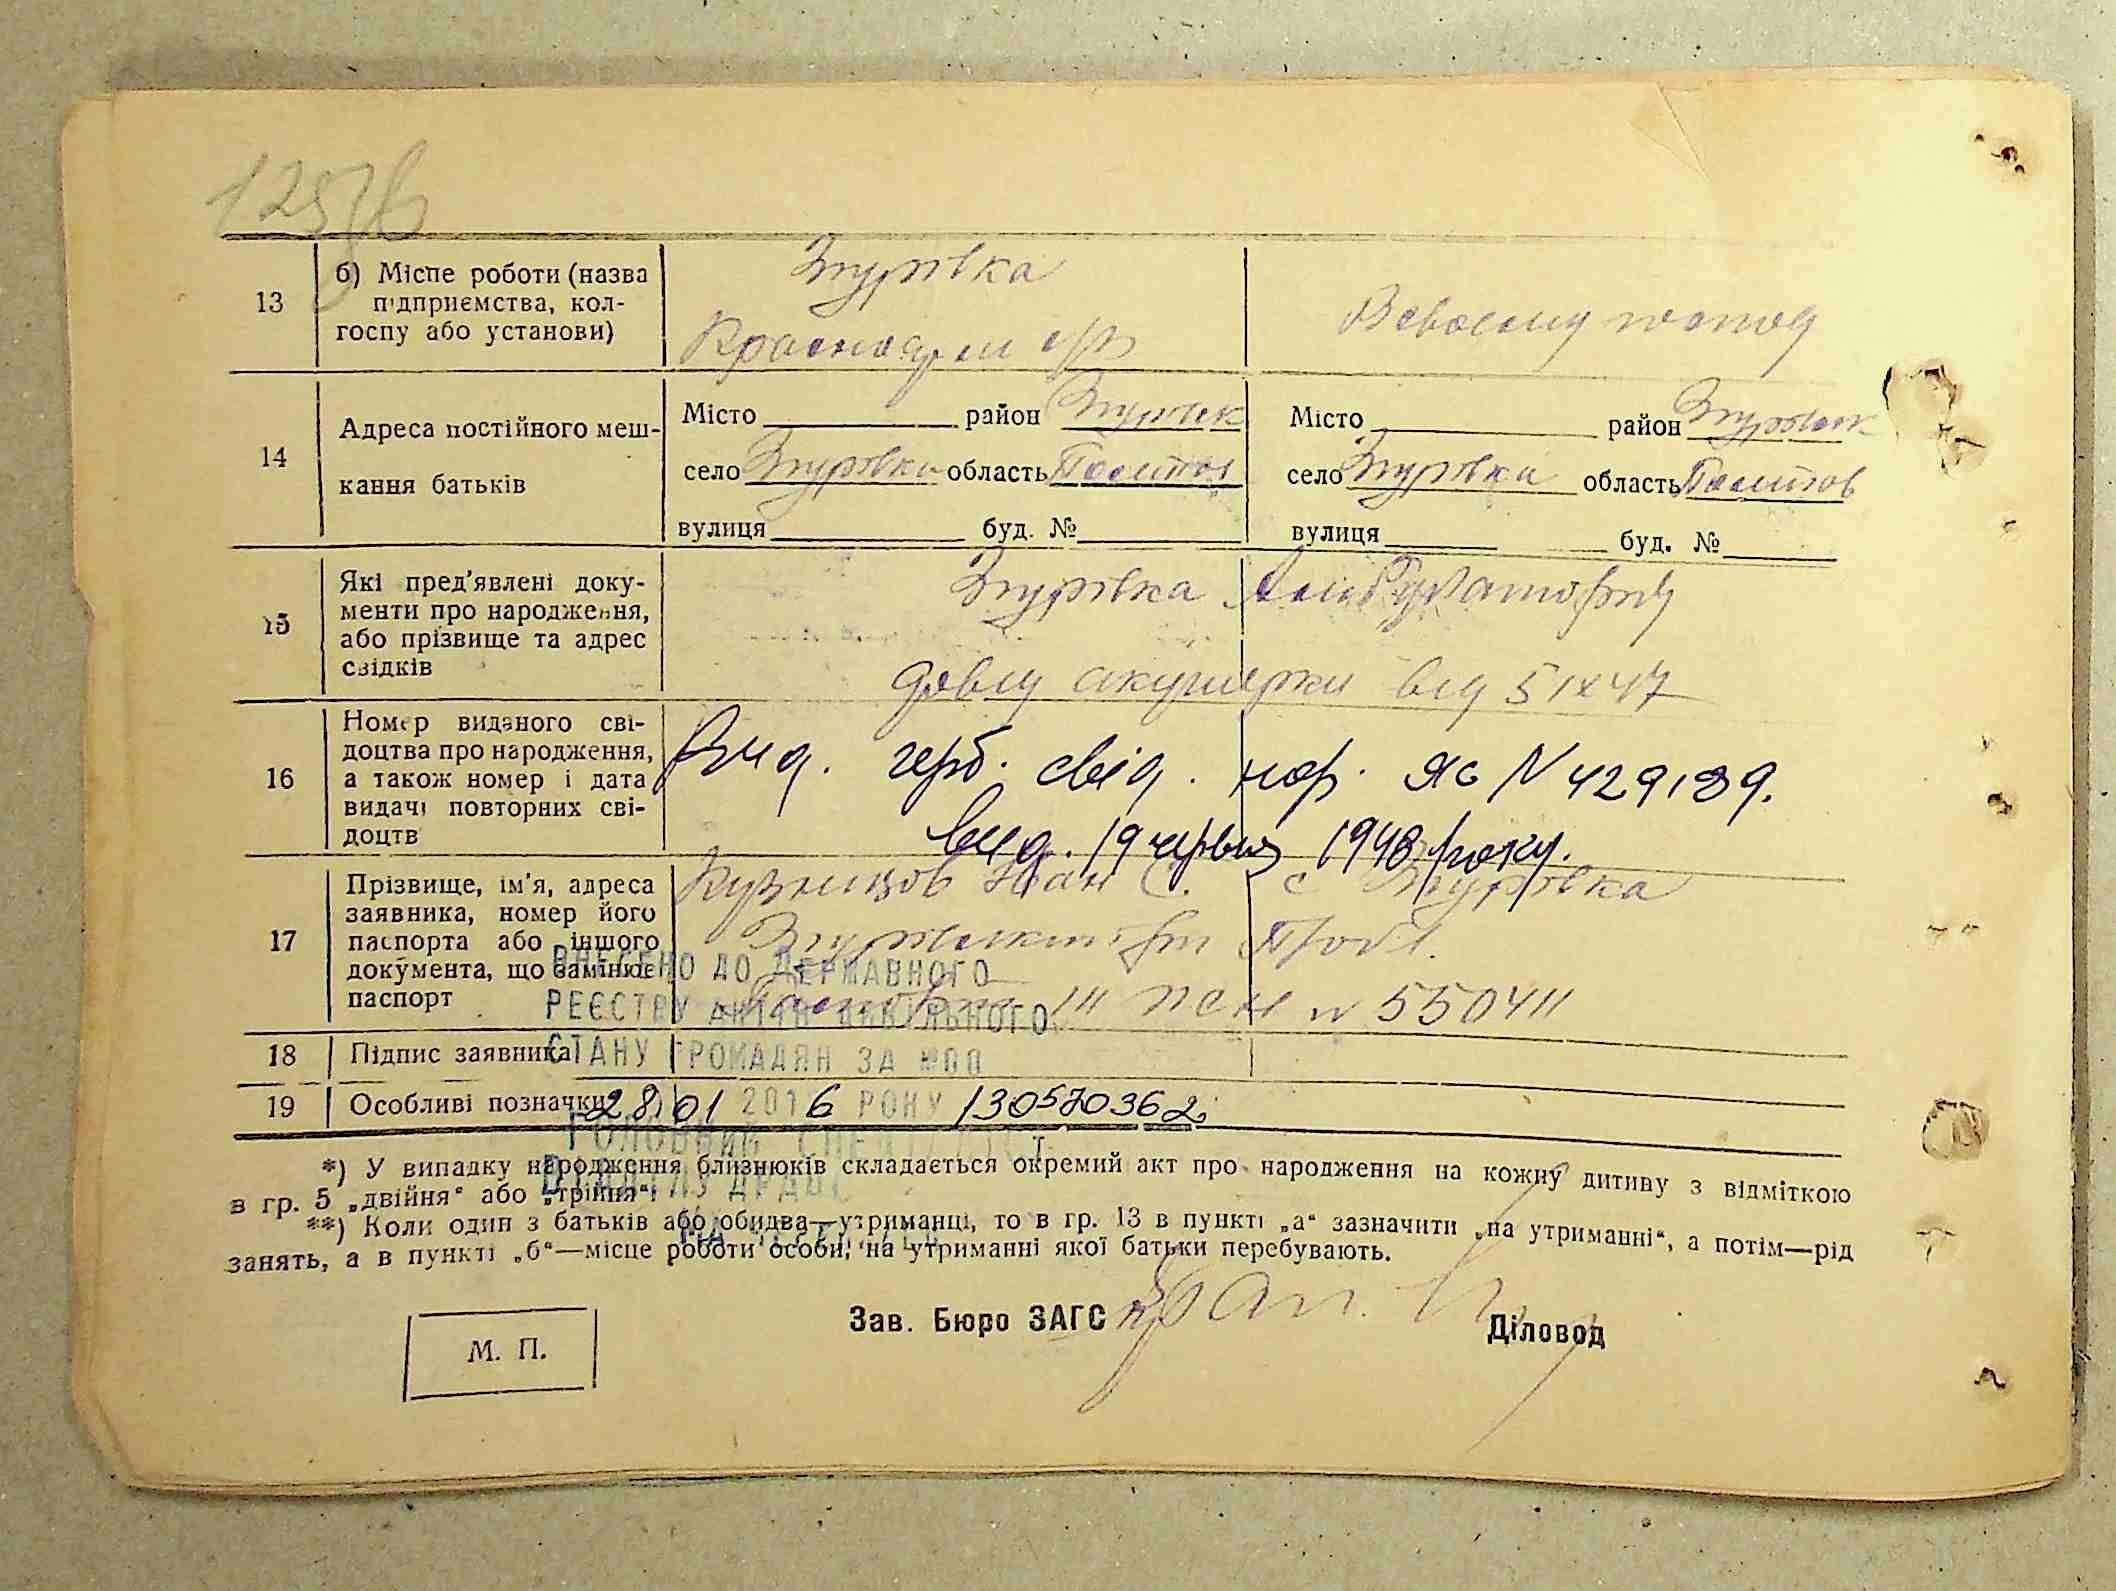 б) Місце роботи (назва
13 підприємства, кол-
госпу або установи)
Згурівка
В своєму господ
14 Адреса постійного меш-
кання батьків
Місто район Згурівськ
село Згурівка область Полтав
вулиця буд. №
Місто район Згурівськ
село Згурівка область Полтов
вулиця буд. №
15 Які пред'явлені доку-
менти про народження,
або прізвище та адрес
свідків
Згурівка Амбулаторії
довід акушерки від 5 IX 47
16 Номер виданого сві-
доцтва про народження,
а також номер і дата
видачі повторних сві-
доцтв
Вид. герб. свід. нар. ЯС N 429189.
вид. 19 червня 1948 року.
17 Прізвище, ім'я, адреса
заявника, номер його
паспорта або іншого
документа, що замінює
паспорт
Кузнецов Іван С. с Згурівка
Згурівський р-н П/обл.
III ПСН № 550411
18 Підпис заявника
19 Особливі позначки
ВНЕСЕНО ДО ДЕРЖАВНОГО
РЕЄСТРУ АКТІВ ЦИВІЛЬНОГО
СТАНУ ГРОМАДЯН ЗА №
28 01 2016 РОКУ 13057036 2
ГОЛОВНИЙ СПЕЦІАЛІСТ
ВІДДІЛУ ДРАЦС
*) У випадку народження близнюків складається окремий акт про народження на кожну дитину з відміткою
в гр. 5 „двійня“ або „трійня“.
**) Коли один з батьків або обидва—утриманці, то в гр. 13 в пункті „а“ зазначити „на утриманні“, а потім—рід
занять, а в пункті „б“—місце роботи особи, на утриманні якої батьки перебувають.
Зав. Бюро ЗАГС
Діловод
М. П.